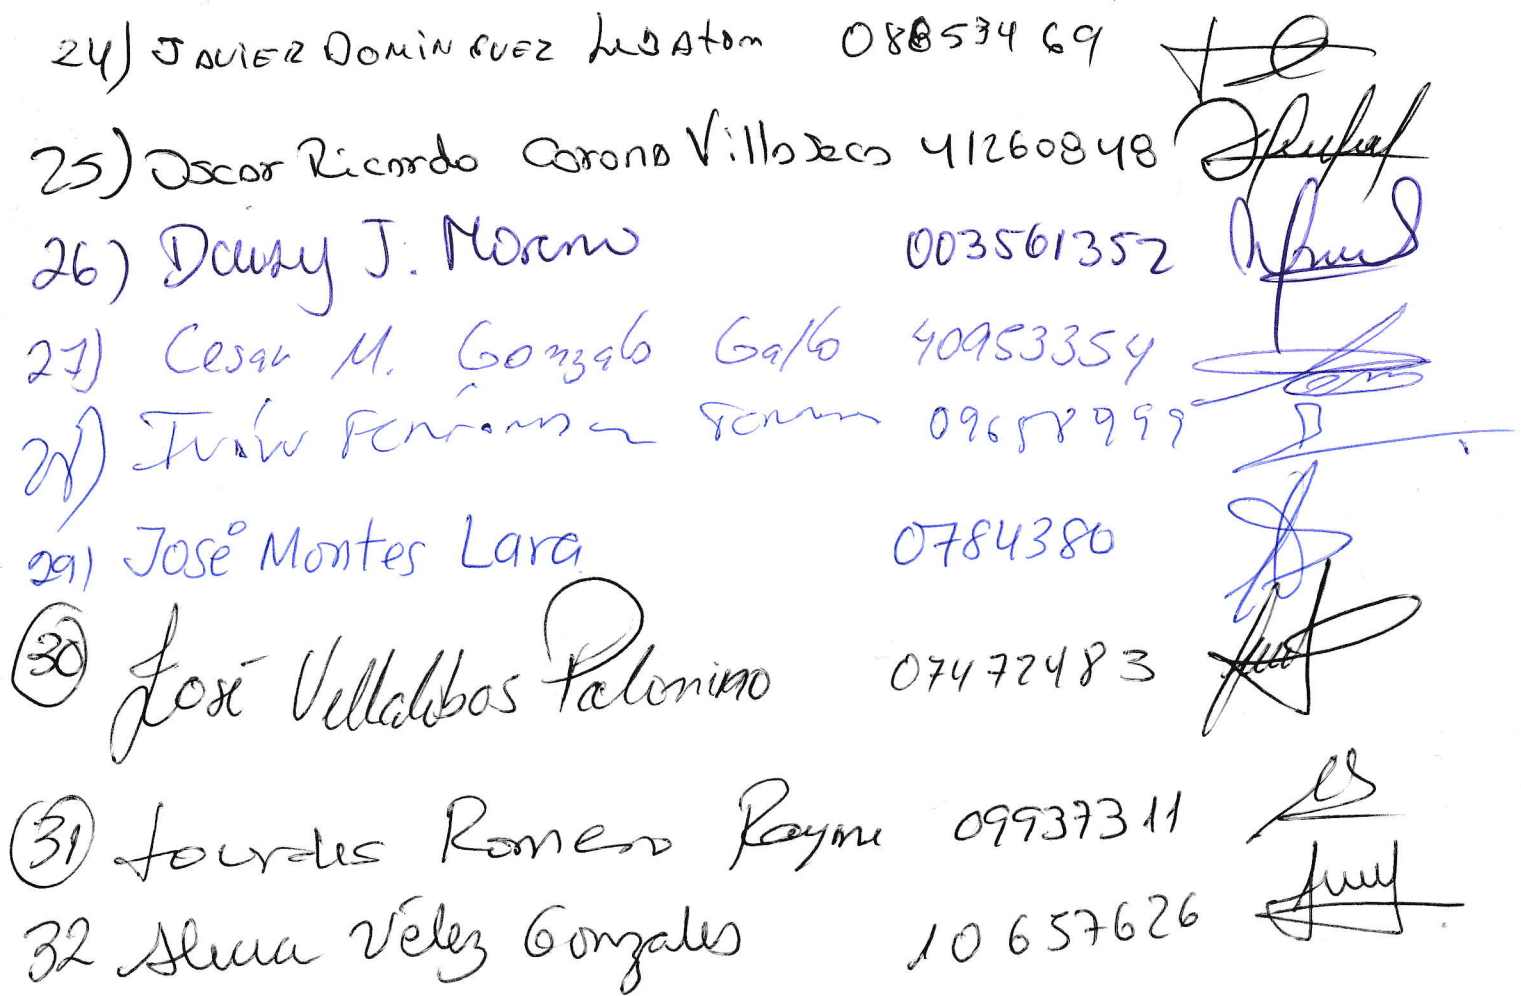 24) JAVIER DOMINGUEZ LEBATON 08853469
25) Oscar Ricardo Corono Villaseca 41260848
26) Daisy J. Moreno 003561352
27) Cesar M. Gonzalo Gallo 40953354
28) Iván Fernández 09658999
29) José Montes Lara 0784380
30 José Villalobos Palomino 07472483
31 Lourdes Romero Rayme 09937311
32 Vélez Gonzales 10657626